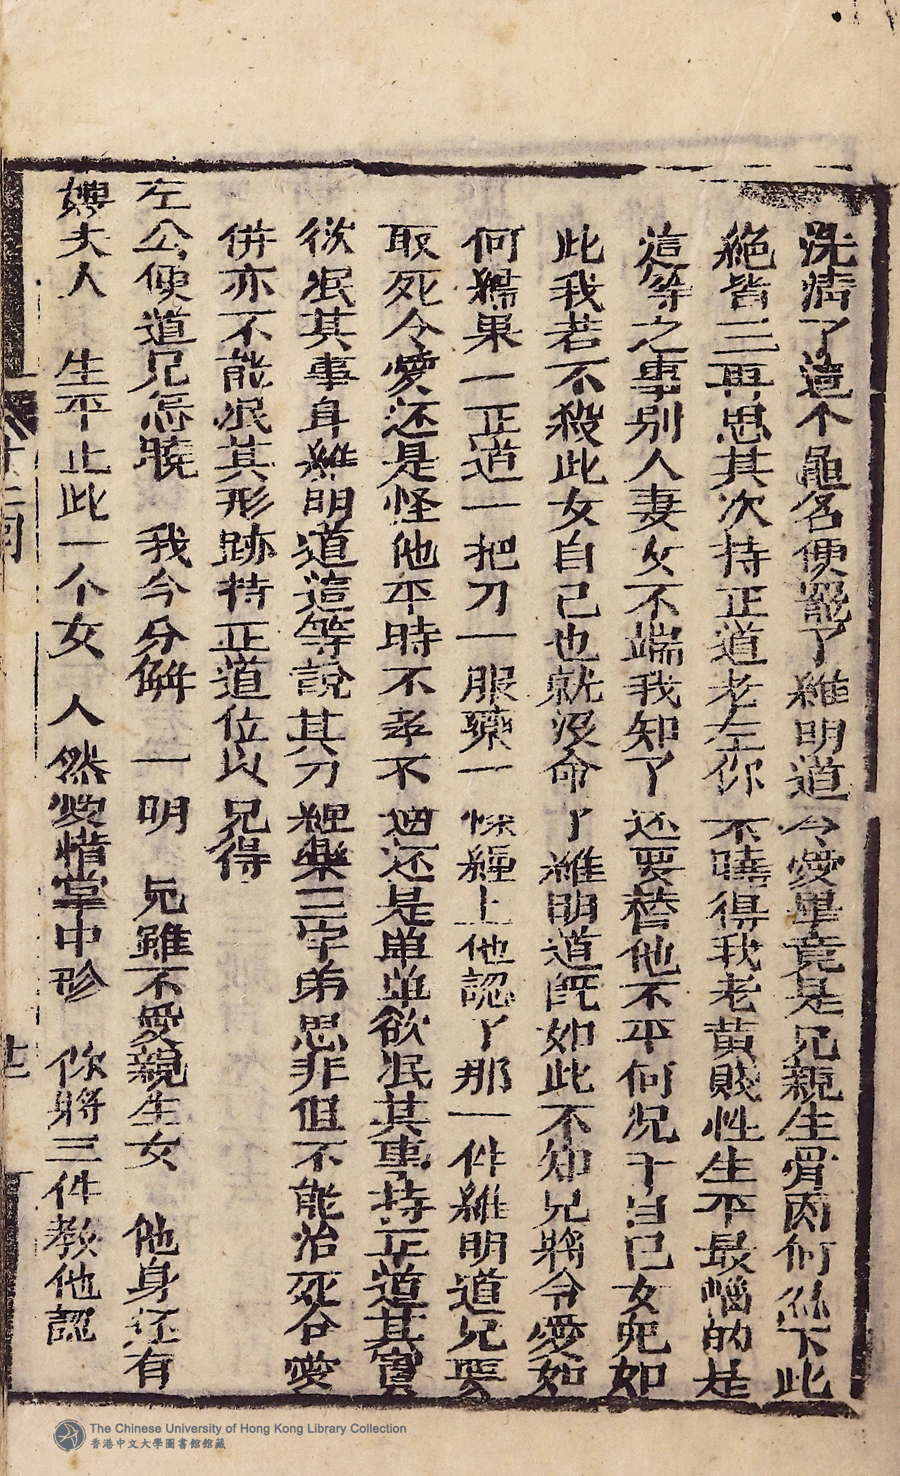 洗清了這个龜名便罷了維明道令愛畢竟是兄親生骨肉何丝下此
絶皆三再思其次持正道老左你不曉得我老黄賤性生平最惱的是
這等之事別人妻女不端我知了还要替他不平何况于自己女兒如
此我若不殺此女自己也就没命了維明道既如此不知兄將令愛如
何果一正道一把刀一服藥一上他認了那一件維明道兄要
取死令愛还是怪他平時不孝不还是单单欲泯其事持正道其實
欲泯其事身維明道這等說其刀藥三字弟思非但不能治死令愛
併亦不能泯其形跡持正道位以兄得
左公便道兄怎曉 我今分解一明 兄雖不愛親生女 他身还有
夫人 生平止此一个女 人然愛惜掌中珍 你將三件教他認
The Chinese University of Hong Kong Library Collection
香港中文大學圖書館館藏